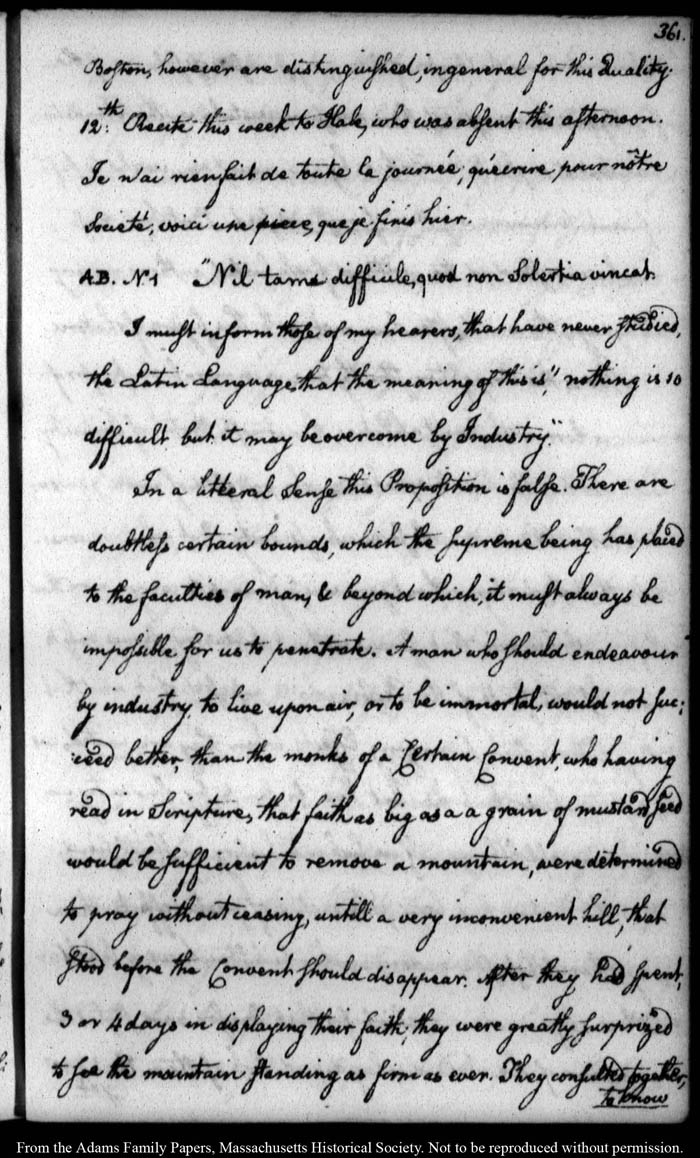 361.
Boston, however are distinguished, in general for this Quality.
12th: Recite this week to Hale, who was absent this afternoon.
Je n'ai rien fait de toute la journée, qu'écrire pour nôtre
Societé, voici une piece, que je finis hier.
A.B. No 1 "Nil tam difficile, quod non Solertia vincat.
I must inform those of my hearers, that have never studied,
the Latin Language, that the meaning of this is, "nothing is so
difficult but it may be overcome by Industry."
In a litteral Sense this Proposition is false. There are
doubtless certain bounds, which the supreme being has placed
to the faculties of man, & beyond which, it must always be
impossible for us to penetrate. A man who should endeavour
by industry to live upon air, or to be immortal, would not suc:
:ceed better, than the monks of a Certain Convent, who having
read in Scripture, that faith as big as a a grain of mustard seed
would be sufficient to remove a mountain, were determined
to pray without ceasing, untill a very inconvenient hill, that
stood before the Convent should disappear. After they had spent,
3 or 4 days in displaying their faith, they were greatly surprized
to see the mountain standing as firm as ever. They consulted together,
to know
From the Adams Family Papers, Massachusetts Historical Society. Not to be reproduced without permission.